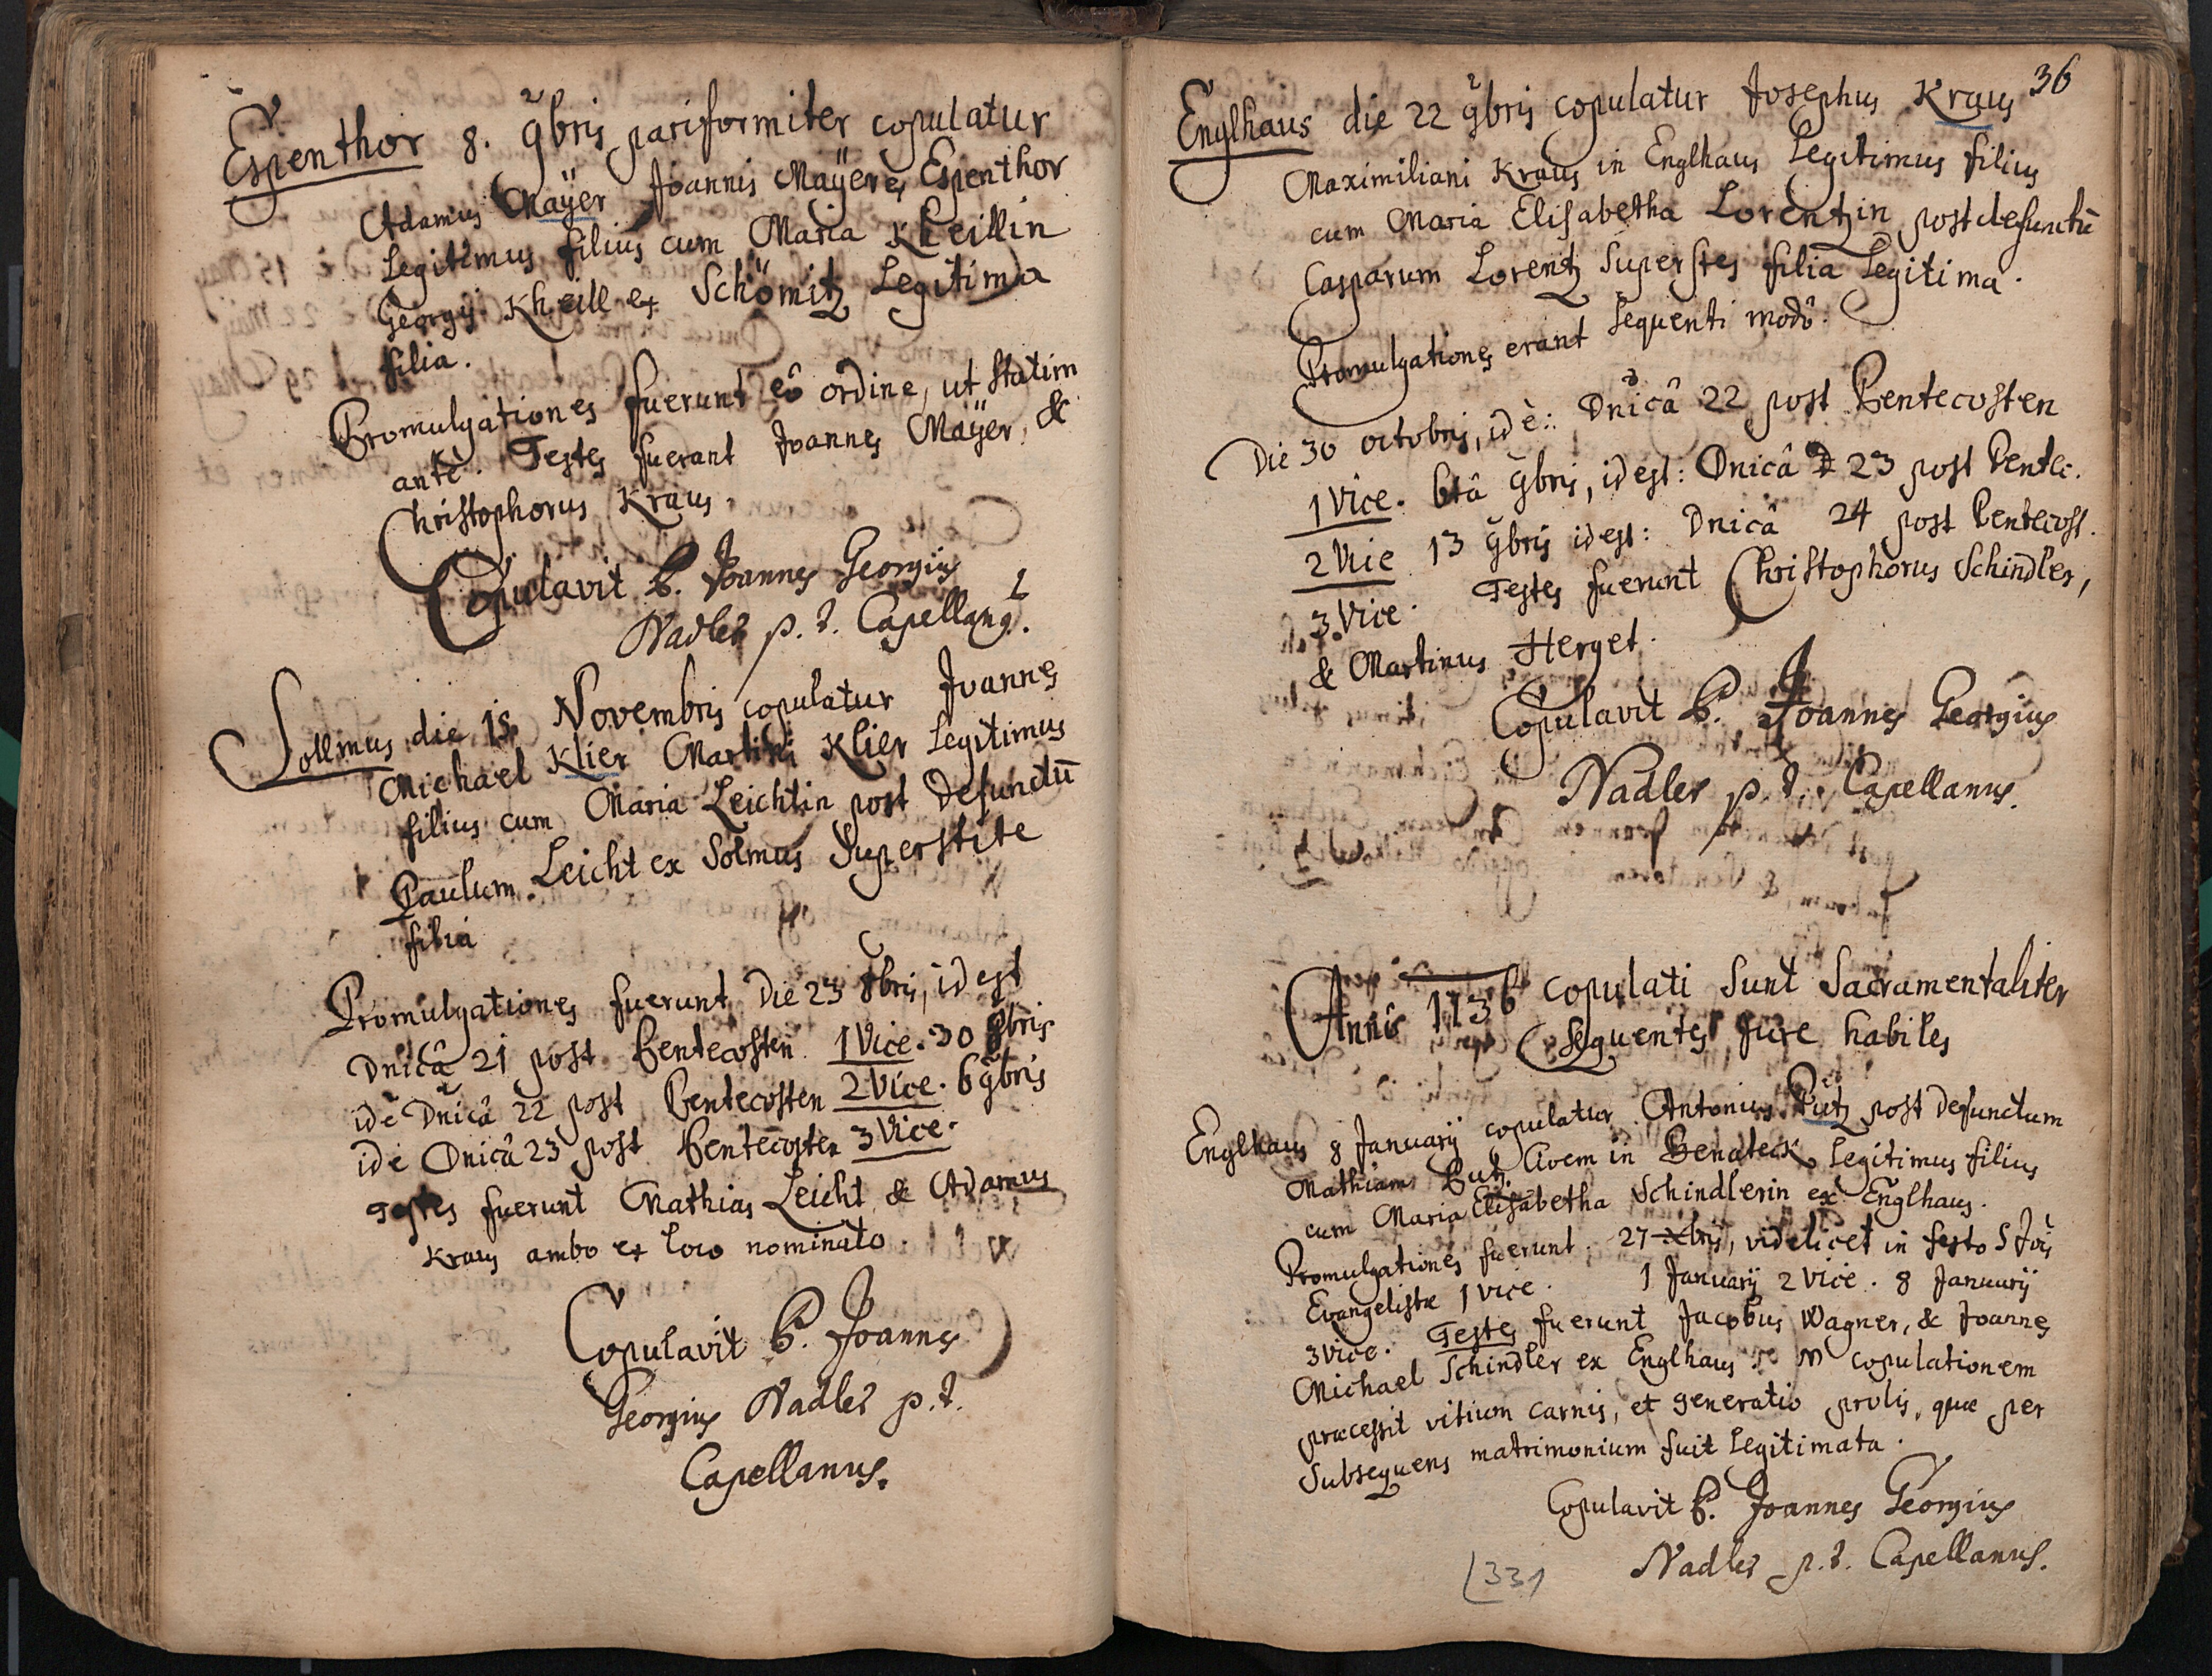 Espenthor 8. 9bris pariformiter copulatur
Adamus Maÿer Joannis Maÿer ex Espenthor
Legitimus filius cum Maria Kheillin
Georgij Kheill ex Schömitz Legitima
filia.
Promulgationes fuerunt eô ordine, ut statim
antè. Testes fuerant Joannes Maÿer, &
Christophorus Kraus.
Copulavit P. Joannes Georgius
Nadler p. t. Capellanus.
Sollmus die 15. Novembris copulatur Joannes
Michael Klier Martini Klier Legitimus
filius cum Maria Leichtin post defunctū
Paulum Leicht ex Solmus Superstite
filia
Promulgationes fuerunt Die 23 8bris, id est
Dnicâ 21 post Pentecosten 1 Vice. 30 8bris
id ē Dnicâ 22 post Pentecosten 2 Vice. 6 9bris
id ē Dnicâ 23 post Pentecosten 3 Vice.
Testes fuerunt Mathias Leicht & Adamus
Kraus ambo ex loco nominato.
Copulavit P. Joannes
Georgius Nadler p. t.
Capellanus.
36
Englhaus die 22 9bris copulatur Josephus Kraus
Maximiliani Kraus in Englhaus Legitimus filius
cum Maria Elisabetha Lorentzin post defunctū
Casparum Lorentz Superstes filia Legitima.
Promulgationes erant sequenti modô.
Die 30 octobris, id ē: Dnicâ 22 post Pentecosten
1 Vice. 6tâ 9bris, id est: Dnicâ 23 post Pentec.
2 Vice 13 9bris id est: Dnicâ 24 post Pentecost.
3 Vice. Testes fuerunt Christophorus Schindler,
& Martinus Herget.
Copulavit P. Joannes Georgius
Nadler p. t. Capellanus.
Annô 1736 copulati Sunt Sacramentaliter
Sequentes jure habiles
Englhaus 8 Januarij copulatur Antonius Pütz post defunctum
Mathiam Putz Civem in Benateck Legitimus filius
cum Maria Elisabetha Schindlerin ex Englhaus.
Promulgationes fuerunt 27 Xbris, videlicet in festo S Jōis
Evangelistæ 1 vice. 1 Januarij 2 Vice. 8 Januarij
3 Vice. Testes fuerunt Jacobus Wagner, & Joannes
Michael Schindler ex Englhaus copulationem
præcessit vitium carnis, et generatio prolis, quæ per
Subsequens matrimonium fuit Legitimata.
Copulavit P. Joannes Georgius
Nadler p. t. Capellanus.
331